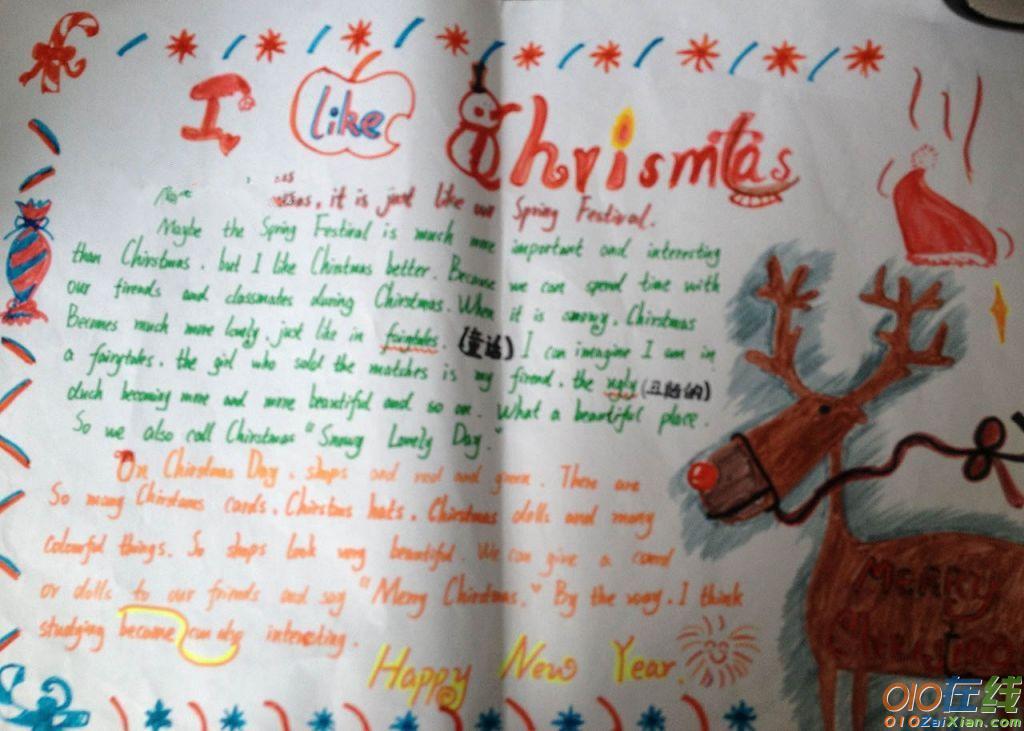 I like Chrismtas
it is just like our Spring Festival.
Maybe the Spring Festival is much more important and interesting
than Chirstmas, but I like Chirstmas better. Because we can spend time with
our firends and classmates during Chirstmas. When it is snowy, Chirstmas
Becomes much more lovely, just like in fairytales. (童话) I can imagine I am in
a fairytales, the girl who sold the matches is my firend, the ugly (丑陋的)
duck becoming more and more beautiful and so on. What a beautiful place.
So we also call Chirstmas "Snowy Lovely Day.
On Chirstmas Day, shops and red and green. There are
So many Chirstmas cards, Chirstms hats, Chirstmas dolls and many
colourful things. So shops look very beautiful. We can give a card
or dolls to our friends and say "Merry Chirstmas." By the way, I think
studying became can also interesting.
Happy New Year.
Merry
010在线
010ZaiXian.com